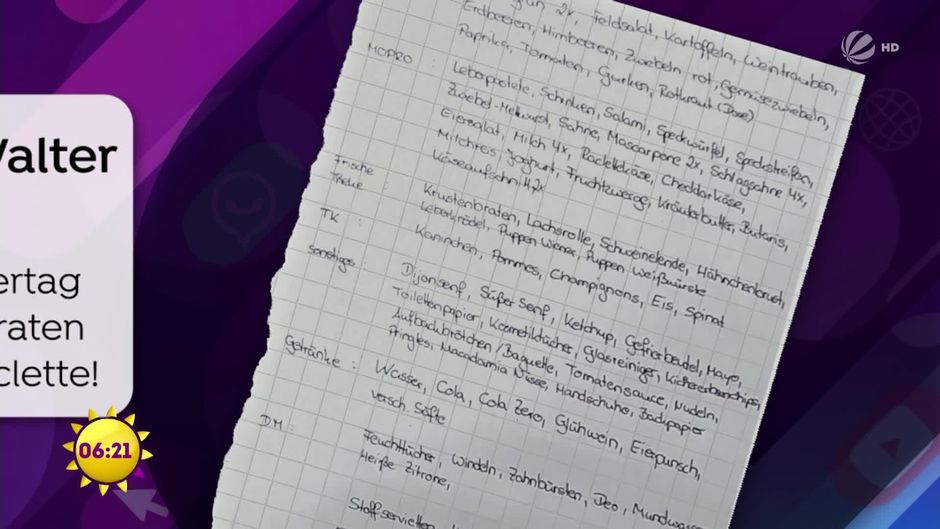 HD
Walter
ertag
raten
clette!
06:21
2x, Feldsalat, Kartoffeln, Weintrauben,
Erdbeeren, Himbeeren, Zwiebeln rot, Gemüsezwiebeln,
Paprika, Tomaten, Gurken, Rotkraut (Dose)
MOPRO : Leberpastete, Schinken, Salami, Speckwürfel, Speckstreifen,
Zwiebel-Mettwurst, Sahne, Mascarpone 2x, Schlagsahne 4x,
Eiersalat, Milch 4x, Raclettekäse, Cheddarkäse,
Milchreis, Joghurt, Fruchtzwerge, Kräuterbutter, Butaris,
Käseaufschnitt 2x
Frische Theke : Krustenbraten, Lachsrolle, Schweinelende, Hähnchenbrust,
Leberknödel, Puppen Wiener, Puppen Weißwürste
TK : Kaninchen, Pommes, Champignons, Eis, Spinat
Sonstiges : Dijonsenf, Süßer Senf, Ketchup, Gefrierbeutel, Mayo,
Toilettenpapier, Kosmetiktücher, Glasreiniger, Kichererbsenchips,
Aufbackbrötchen/Baguette, Tomatensauce, Nudeln,
Pringles, Macadamia Nüsse, Handschuhe, Backpapier
Getränke : Wasser, Cola, Cola Zero, Glühwein, Eierpunsch,
versch. Säfte
DM : Feuchttücher, Windeln, Zahnbürsten, Deo, Mundwasser
Heiße Zitrone,
Stoffservietten